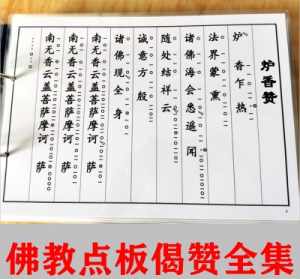 炉香赞
炉香乍热
法界蒙熏
诸佛海会悉遥闻
随处结祥云
诚意方殷
诸佛现全身
南无香云盖菩萨摩诃萨
南无香云盖菩萨摩诃萨
南无香云盖菩萨摩诃萨
佛教点板偈赞全集